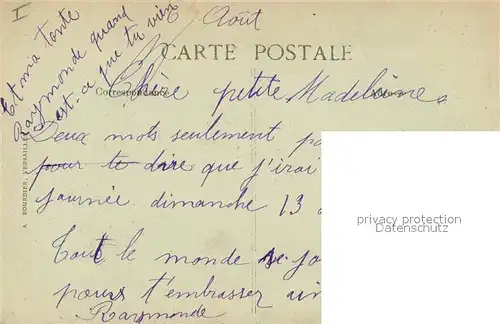 I
Août
Et ma tante
Raymonde quand
est-ce que tu vien
CARTE POSTALE
Correspondance
Chère petite Madeleine
Deux mots seulement po
pour te dire que j'irai
journée dimanche 13
Tout le monde se jo
pour t'embrasser ain
Raymonde
A BOURDIER, VERSAILLES
privacy protection
Datenschutz